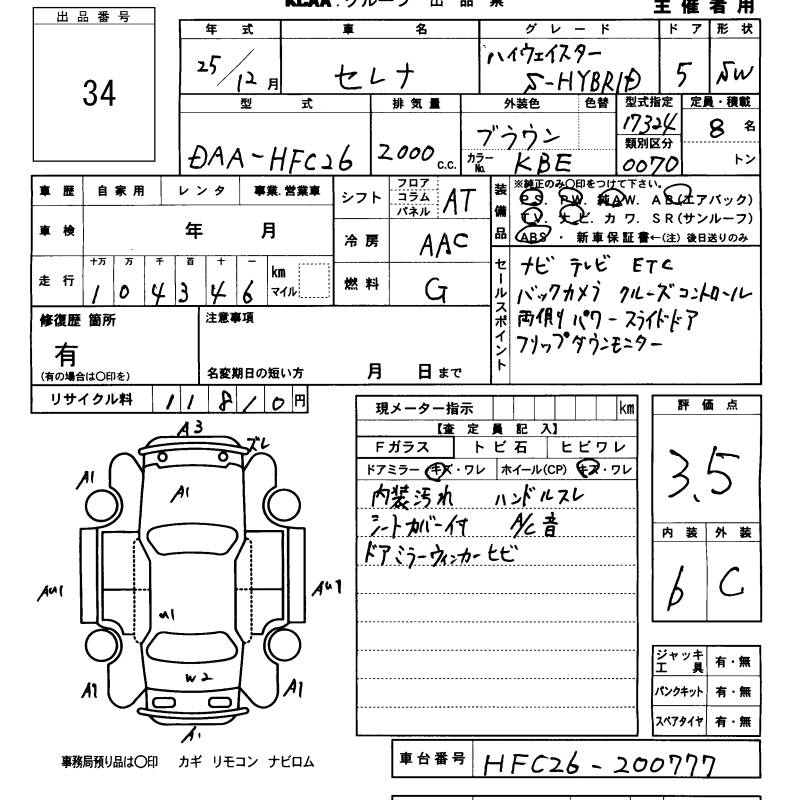 KCAA.グループ 出品票 主催者用
出品番号
34
年式 車名 グレード ドア 形状
25/12月 セレナ ハイウェイスター S-HYBRID 5 SW
型式 排気量 外装色 色替 型式指定 定員・積載
DAA-HFC26 2000 c.c. ブラウン 17324 8名
カラーNo. KBE 類別区分 0070 トン
車歴 自家用 レンタ 事業.営業車
車検 年 月
走行 十万 万 千 百 十 一 km マイル
1 0 4 3 4 6
シフト フロア コラム パネル AT
冷房 AAC
燃料 G
装備品 ※純正のみ○印をつけて下さい。
PS. PW. 純AW. AB(エアバック)
TV. ナビ. カワ. SR(サンルーフ)
ABS ・ 新車保証書←(注) 後日送りのみ
セールスポイント
ナビ テレビ ETC
バックカメラ クルーズコントロール
両側パワースライドドア
フリップダウンモニター
修復歴 箇所 注意事項
有
(有の場合は○印を) 名変期日の短い方 月 日まで
リサイクル料 11810円
現メーター指示 km
【査定員記入】
Fガラス トビ石 ヒビワレ
ドアミラー キズ・ワレ ホイール(CP) キズ・ワレ
内装汚れ ハンドルスレ
シートカバー付 A/C音
ドアミラーウィンカーヒビ
評価点
3.5
内装 外装
b C
ジャッキ工具 有・無
パンクキット 有・無
スペアタイヤ 有・無
A3 ズレ
A1 A1
AU1 AU1
U1
W2
A1 A1
A1
事務局預り品は○印 カギ リモコン ナビロム
車台番号 HFC26-200777